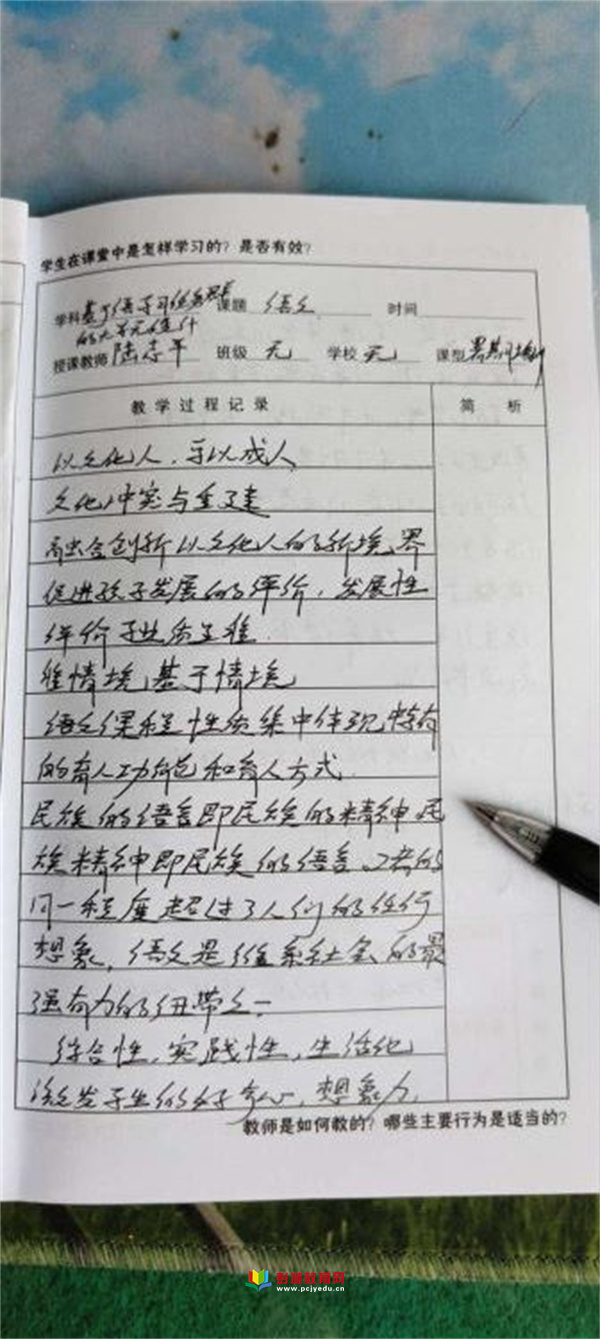 学生在课堂中是怎样学习的？是否有效？
学科 基于语文学习任务群 课题 语文 时间
的大单元设计
授课教师 陆志平 班级 无 学校 无 课型 暑期培训
教学过程记录 简析
以文化人，予以成人
文化冲突与重建
融会创新以文化人的新境界
促进孩子发展的评价，发展性
评价
情境 基于情境
语文课程性质集中体现特有
的育人功能和育人方式.
民族的语言即民族的精神，民
族精神即民族的语言，二者的
同一程度超过了人们的任何
想象，语文是维系社会的最
强有力的纽带之一
综合性，实践性，生活化
激发学生的好奇心，想象力.
教师是如何教的？哪些主要行为是适当的？
创磊教育网
www.pcjyedu.cn